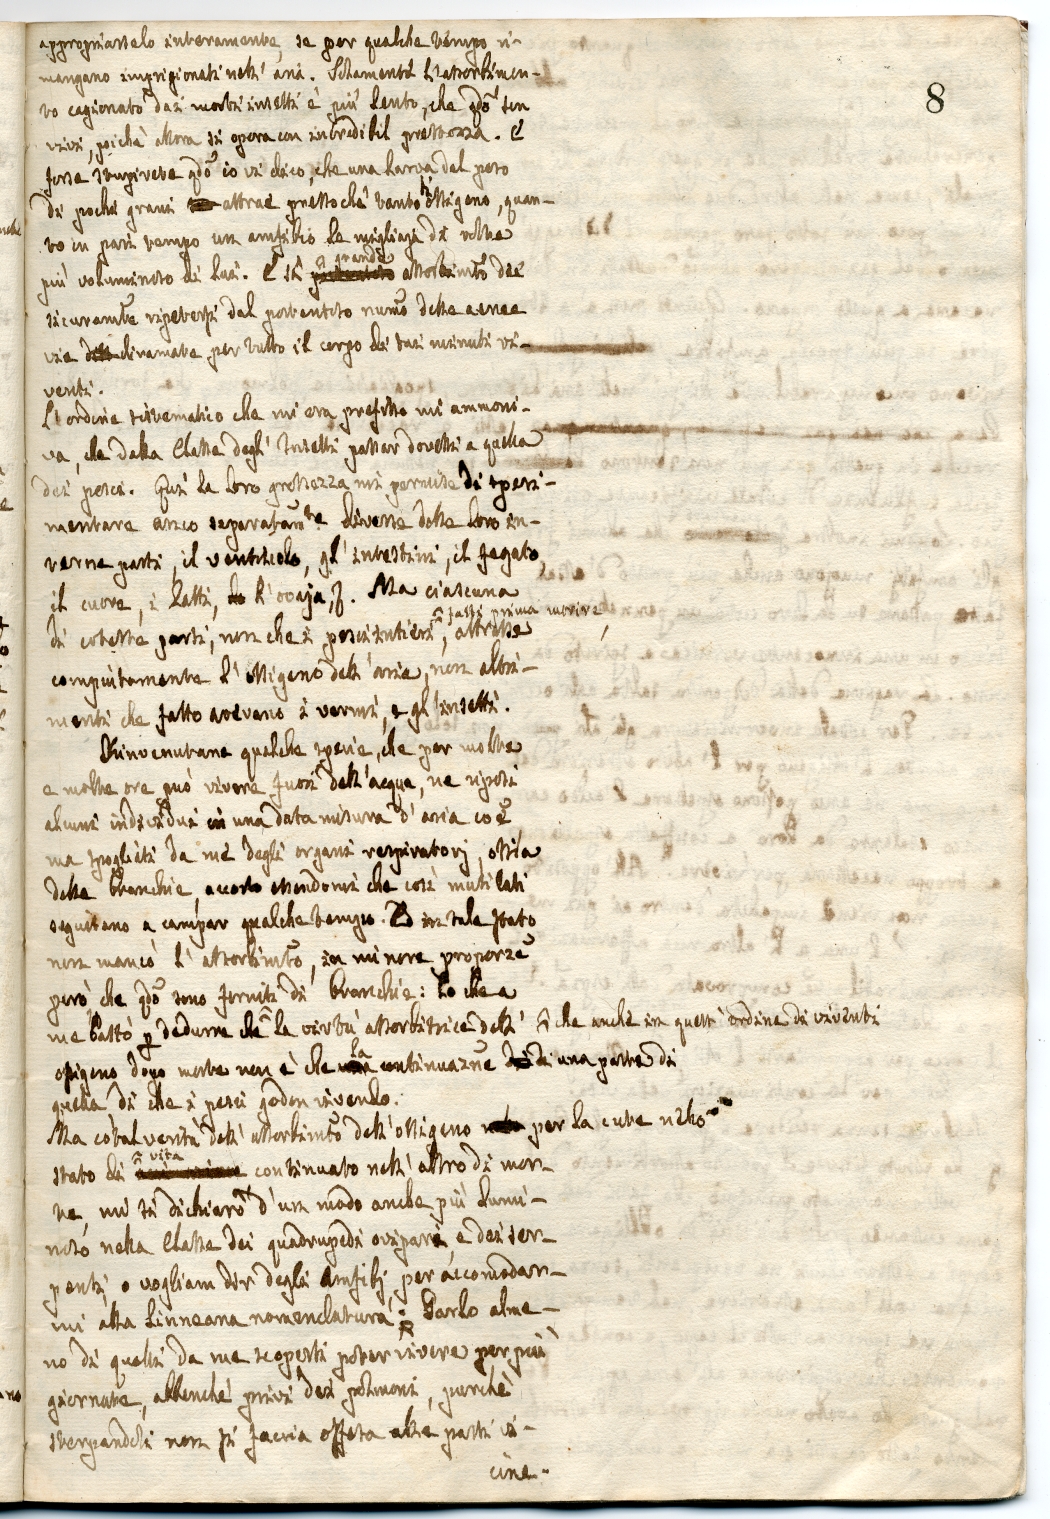 8
appropriarselo interamente, se per qualche tempo ri-
mangano imprigionati nell' aria. Solamente l'assorbimen-
to cagionato dai morti insetti è più lento, che qdo son
vivi, poichè allora si opera con incredibil prestezza. E
forse stupirete qdo io vi dico, che una larva del peso
di pochi grani attrae pressochè tanto ossigeno, quan-
to in pari tempo un amfibio le migliaja di volte
più voluminoso di lui. E sì grande assorbimto dee
sicuramte ripetersi dal portentoso numo delle aeree
vie diramate per tutto il corpo di tai minuti vi-
venti.
L'ordine sistematico che mi era prefisso mi ammoni-
va, che dalla Classe degl' Insetti passar dovessi a quella
dei pesci. Qui la loro grossezza mi permise di speri-
mentare anco separatamte diverse delle loro in-
terne parti, il ventricolo, gl' intestini, il fegato,
il cuore, i latti, l' ovaja, Ma ciascuna
di coteste parti, non che i pesci intieri, fatti prima morire, attrasse
compiutamente l' ossigeno dell' aria, non altri-
menti che fatto avevano i vermi, e gl' insetti.
Rinvenutane qualche specie, che per molte
e molte ore può vivere fuori dell' acqua, ne riposi
alcuni individui in una data misura d' aria coe
ma spogliati da me degli organi respiratorj, ossia
delle branchie, accorto essendomi che così mutilati
seguitano a campar qualche tempo. Ed in tale stato
non mancò l' assorbimto, in minore proporze
però che qdo sono forniti di branchie: Lo che a
me bastò p dedurre che anche in quest' ordine di viventi la virtù assorbitrice dell'
ossigeno dopo morte non è che la continuazne di una parte di
quella di che i pesci godon vivendo.
Ma cotal verità dell' assorbimto dell' ossigeno per la cute nello
stato di vita continuato nell' altro di mor-
te, mi si dichiarò d' un modo anche più lumi-
noso nella Classe dei quadrupedi ovipari, e dei ser-
penti, o vogliam dir degli Amfibj, per accomodar-
mi alla Linneana nomenclatura. Parlo alme-
no di quelli da me scoperti poter vivere per più
giornate, abbenchè privi dei polmoni, purchè
sterpandoli non si faccia offesa alle parti vi-
cine.